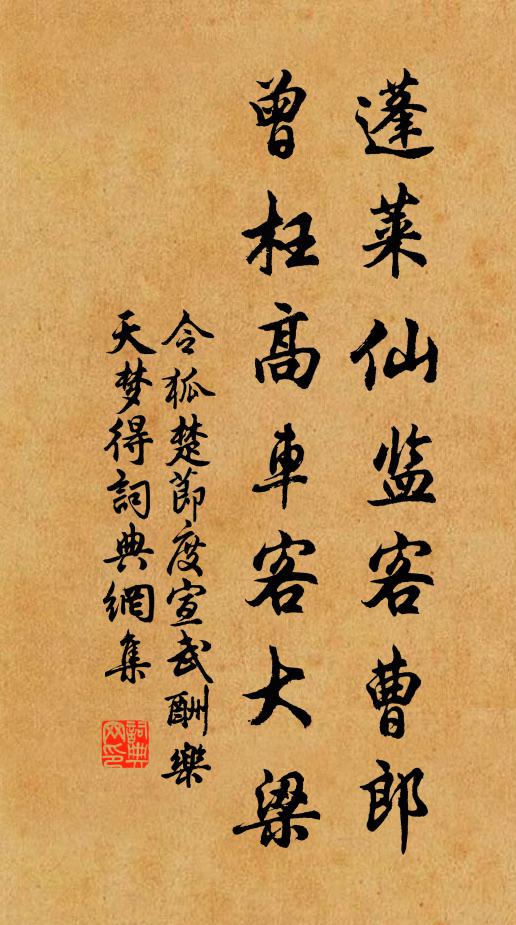 蓬莱仙监客曹郎
曾枉高車客大梁
令狐楚節度宣武酬樂
天梦得詞典網集
詞典網印